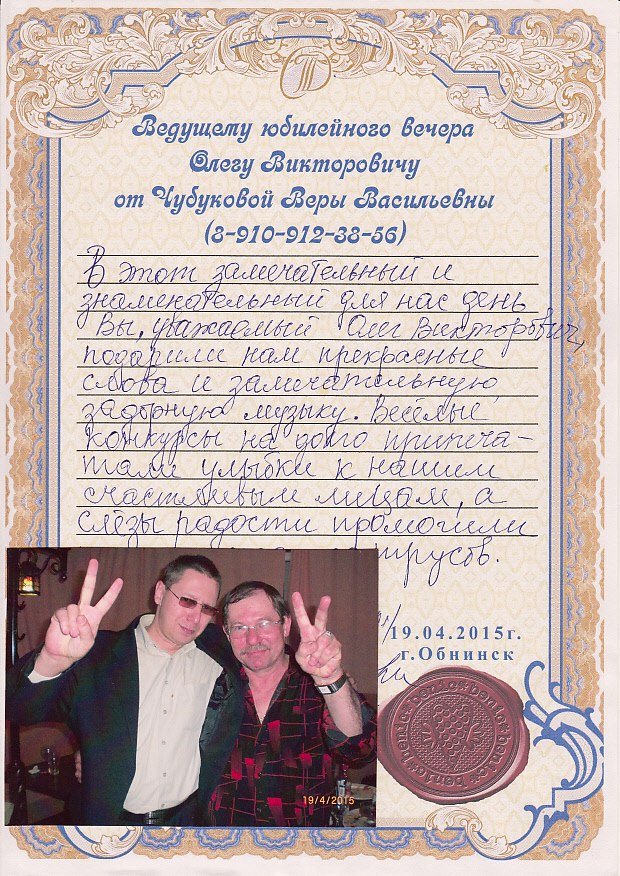 Ведущему юбилейного вечера
Олегу Викторовичу
от Чубуковой Веры Васильевны
(8-910-912-38-56)
В этот замечательный и
знаменательный для нас день
Вы, уважаемый Олег Викторович,
подарили нам прекрасные
слова и замечательную,
задорную музыку. Весёлые
конкурсы на долго припеча-
тали улыбки к нашим
счастливым лицам, а
слёзы радости промочили
трусов.
19.04.2015г.
г.Обнинск
19/4/2015